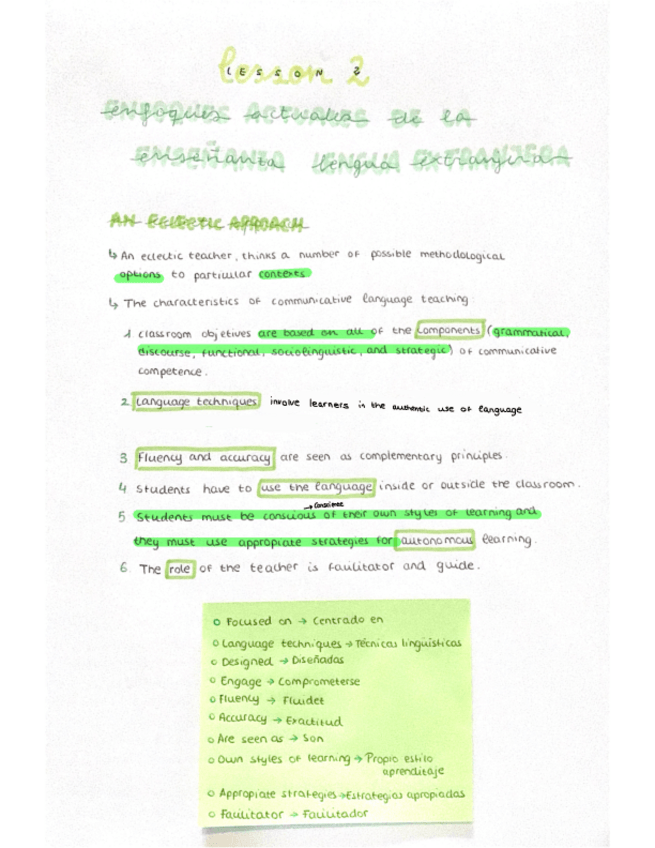 lesson 2
LESSON 2
enfoques actuales de la
enseñanza lengua extranjera
AN ECLECTIC APPROACH
↳ An eclectic teacher, thinks a number of possible methodological
options to particular contexts
↳ The characteristics of communicative language teaching
1 classroom objetives are based on all of the components (grammatical,
discourse, functional, sociolinguistic, and strategic) of communicative
competence.
2 Language techniques involve learners in the authentic use of language
3 Fluency and accuracy are seen as complementary principles.
4 Students have to use the language inside or outside the classroom.
→ Consciente
5 Students must be conscious of their own styles of learning and
they must use appropiate strategies for autonomous learning.
6. The role of the teacher is facilitator and guide.
o Focused on → Centrado en
o Language techniques → Técnicas lingüísticas
o Designed → Diseñadas
o Engage → Comprometerse
o Fluency → Fluidez
o Accuracy → Exactitud
o Are seen as → Son
o Own styles of learning → Propio estilo
aprendizaje
o Appropiate strategies → Estrategias apropiadas
o Facilitator → Facilitador